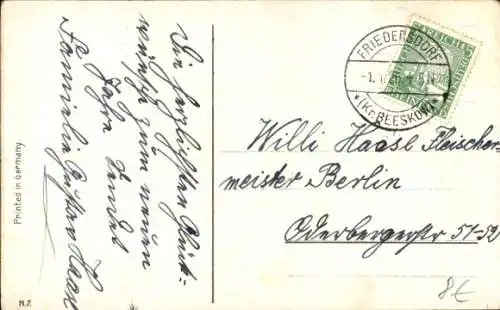 Die herzlichsten Glück-
wünsche zum neuen
Jahre sendet
Familie Gustav Haasl
Printed in Germany.
N.Z.
FRIEDERSDORF
-1.1.26
* (Kr. BEESKOW) *
Willi Haasl Fleischer-
meister Berlin
Oderbergerstr 51-52
8€